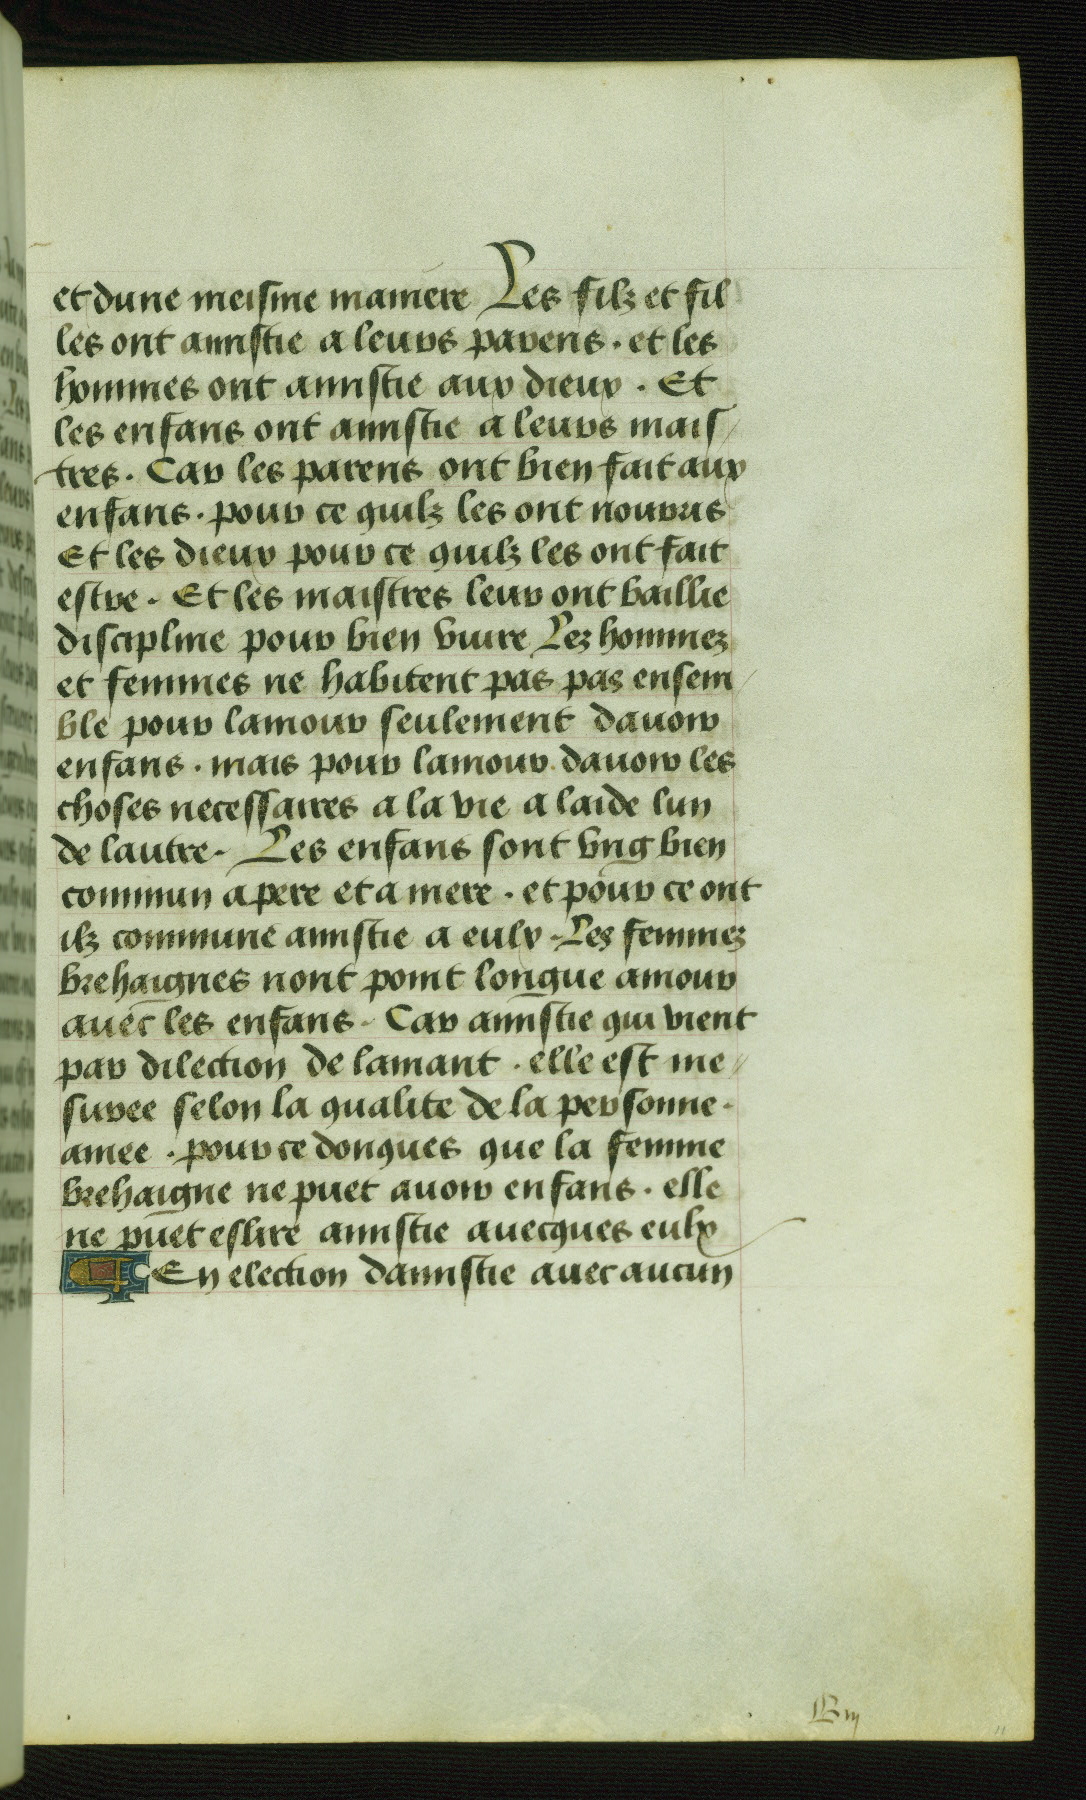 et dune meisme maniere Les filz et fil
les ont amistie a leurs parens . et les
hommes ont amistie aux dieux . Et
les enfans ont amistie a leurs mais
tres . Car les parens ont bien fait aux
enfans . pour ce quilz les ont nourris
Et les dieux pour ce quilz les ont fait
estre . Et les maistres leur ont baillie
discipline pour bien viure Lez hommez
et femmes ne habitent pas pas ensem
ble pour lamour seulement dauoir
enfans . mais pour lamour dauoir les
choses necessaires a la vie a laide lun
de lautre . Les enfans sont vng bien
commun a pere et a mere . et pour ce ont
ilz commune amistie a eulx . Lez femmez
brehaignes nont point longue amour
auec les enfans . Car amistie qui vient
par dilection de lamant . elle est me
suree selon la qualite de la personne .
amee . pour ce donques que la femme
brehaigne ne puet auoir enfans . elle
ne puet eslire amistie auecques eulx
En election damistie auec aucun
B iij
11